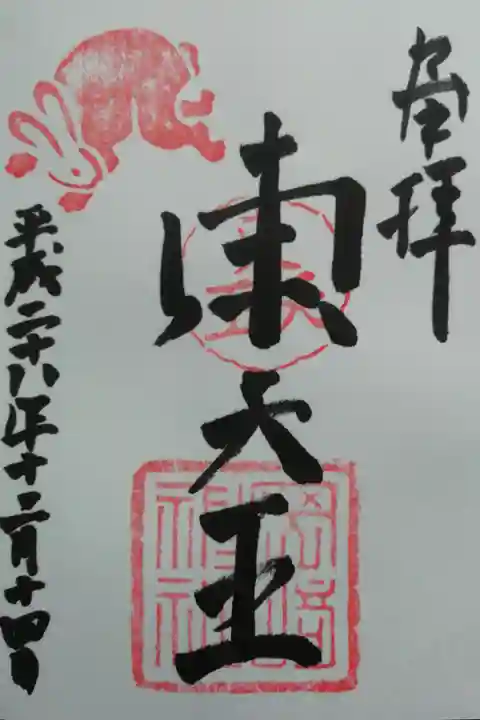 奉拝
東天王
岡崎神社
平成二十八年十二月十四日